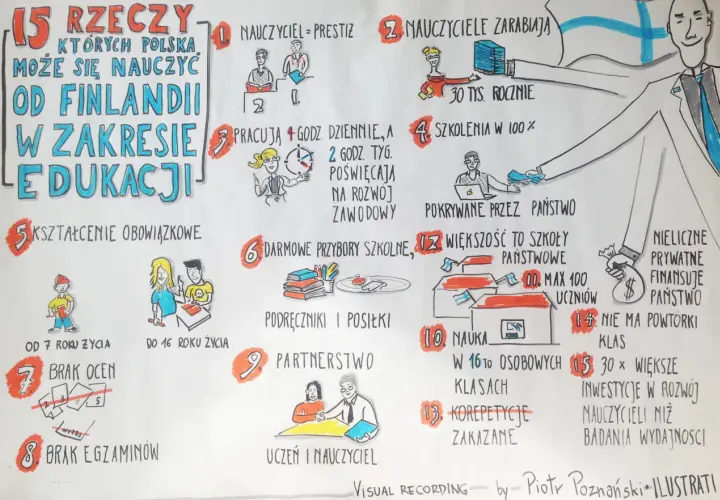 15 RZECZY
KTÓRYCH POLSKA
MOŻE SIĘ NAUCZYĆ
OD FINLANDII
W ZAKRESIE
EDUKACJI
1. NAUCZYCIEL = PRESTIŻ
2. 1.
2. NAUCZYCIELE ZARABIAJĄ
30 TYS. ROCZNIE
3. PRACUJĄ 4 GODZ DZIENNIE, A
2 GODZ. TYG.
POŚWIĘCAJĄ
NA ROZWÓJ
ZAWODOWY
4. SZKOLENIA W 100%
POKRYWANE PRZEZ PAŃSTWO
5. KSZTAŁCENIE OBOWIĄZKOWE
OD 7 ROKU ŻYCIA
DO 16 ROKU ŻYCIA
6. DARMOWE PRZYBORY SZKOLNE,
PODRĘCZNIKI I POSIŁKI
7 BRAK OCEN
2 3 5
8. BRAK EGZAMINÓW
9. PARTNERSTWO
UCZEŃ I NAUCZYCIEL
12 WIĘKSZOŚĆ TO SZKOŁY
PAŃSTWOWE
MAX 100
UCZNIÓW
NIELICZNE
PRYWATNE
FINANSUJE
PAŃSTWO
$
10. NAUKA
W 16TO OSOBOWYCH
KLASACH
13. KOREPETYCJE
ZAKAZANE
14. NIE MA POWTÓRKI
KLAS
15. 30 X WIĘKSZE
INWESTYCJE W ROZWÓJ
NAUCZYCIELI NIŻ
BADANIA WYDAJNOŚCI
VISUAL RECORDING — by — Piotr Poznański • ILUSTRATI